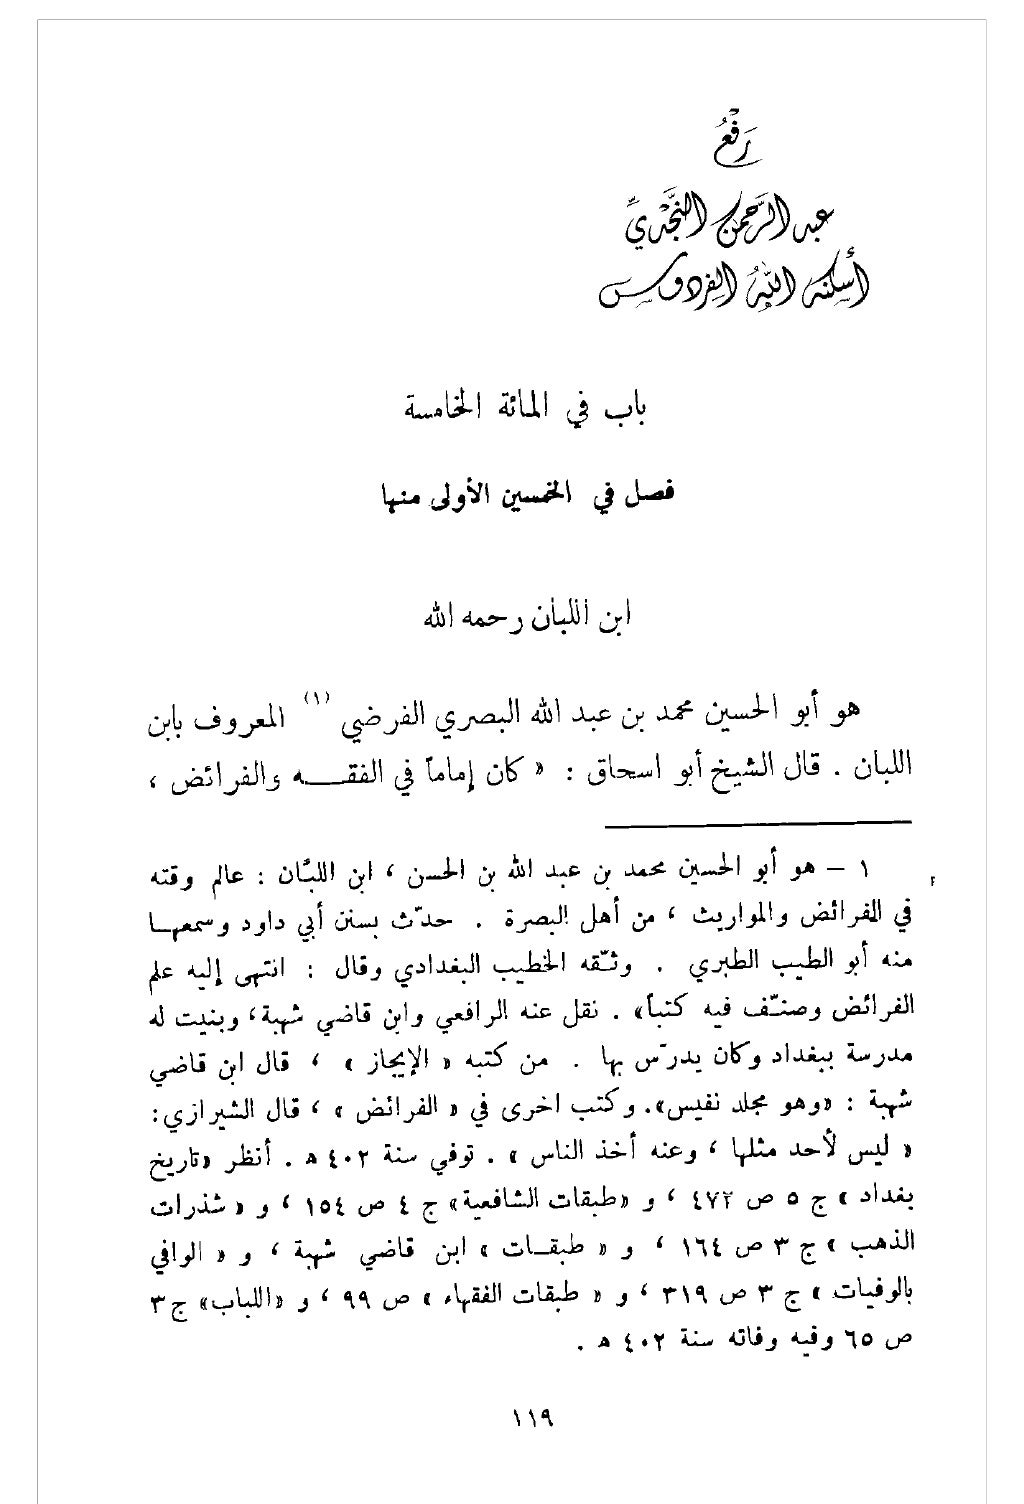 رَفْعُ
عبد الرَّحمن النَّجْديِّ
أسكنه اللّٰه الفردوس
باب في المائة الخامسة
فصل في الخمسين الأولى منها
ابن اللبان رحمه الله
هو أبو الحسين محمد بن عبد الله البصري الفرضي (١) المعروف بابن
اللبان . قال الشيخ أبو اسحاق : « كان إماماً في الفقـــه والفرائض ،
١ – هو أبو الحسين محمد بن عبد الله بن الحسن ، ابن اللبَّان : عالم وقته
في الفرائض والمواريث ، من أهل البصرة . حدّث بسنن أبي داود وسمعهـا
منه أبو الطيب الطبري . وثّقه الخطيب البغدادي وقال : انتهى إليه علم
الفرائض وصنّف فيه كتباً» . نقل عنه الرافعي وابن قاضي شهبة، وبنيت له
مدرسة ببغداد وكان يدرّس بها . من كتبه « الإيجاز » ، قال ابن قاضي
شهبة : «وهو مجلد نفيس». وكتب اخرى في « الفرائض » ، قال الشيرازي:
« ليس لأحد مثلها ، وعنه أخذ الناس » . توفي سنة ٤٠٢ ه . أنظر «تاريخ
بغداد » ج ٥ ص ٤٧٢ ، و «طبقات الشافعية» ج ٤ ص ١٥٤ ، و « شذرات
الذهب » ج ٣ ص ١٦٤ ، و « طبقـات » ابن قاضي شهبة ، و « الوافي
بالوفيات » ج ٣ ص ٣١٩ ، و « طبقات الفقهاء » ص ٩٩ ، و «اللباب» ج ٣
ص ٦٥ وفيه وفاته سنة ٤٠٢ ه .
١١٩